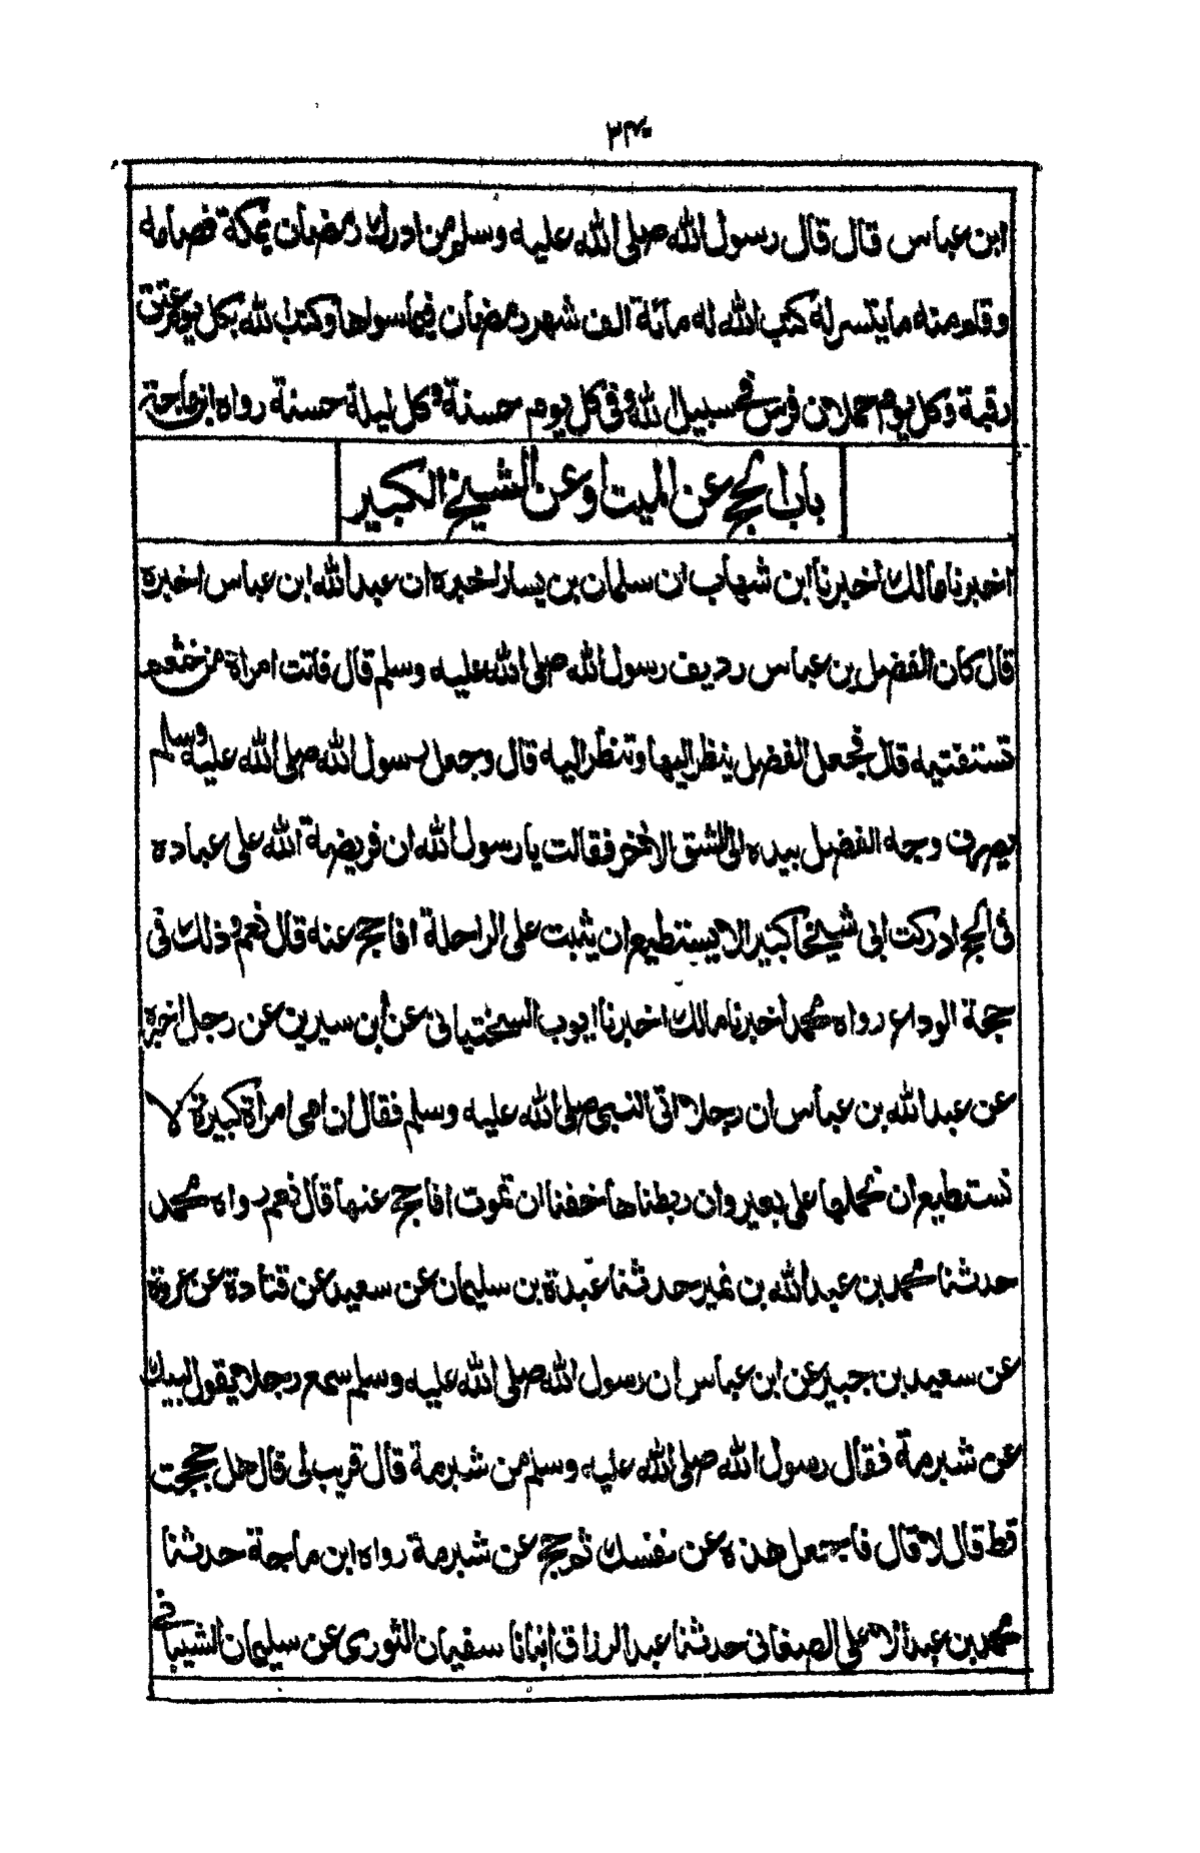 ٣٤٠
ابن عباس قال قال رسول الله صلى الله عليه وسلم من ادرك رمضان بمكة فصامه
وقام منه ما يتسر له كتب الله له مائة الف شهر رمضان فيما سواها وكتب لله بكل يوم عتق
رقبة وكل يوم حملان فرس في سبيل الله وفى كل يوم حسنة وكل ليلة حسنة رواه ابن ماجة
باب الحج عن الميت او عن الشيخ الكبير
اخبرنا مالك اخبرنا ابن شهاب ان سلمان بن يسار اخبره ان عبد الله ابن عباس اخبره
قال كان الفضل بن عباس رديف رسول الله صلى الله عليه وسلم قال فاتت امراة من خثعم
تستفتيه قال فجعل الفضل ينظر اليها وتنظر اليه قال وجعل رسول الله صلى الله عليه وسلم
يصرف وجه الفضل بيده الى الشق الاخر فقالت يا رسول الله ان فريضة الله على عباده
فى الحج ادركت ابى شيخا كبيرا لا يستطيع ان يثبت على الراحلة افاحج عنه قال نعم وذلك فى
حجة الوداع رواه محمد اخبرنا مالك اخبرنا ايوب السختيانى عن ابن سيرين عن رجل اخبره
عن عبد الله بن عباس ان رجلا اتى النبى صلى الله عليه وسلم فقال ان امى امراة كبيرة لا
تستطيع ان نحملها على بعير وان ربطناها خفنا ان تموت افاحج عنها قال نعم رواه محمد
حدثنا محمد بن عبد الله بن نمير حدثنا عبدة بن سليمان عن سعيد عن قتادة عن عروة
عن سعيد بن جبير عن ابن عباس ان رسول الله صلى الله عليه وسلم سمع رجلا يقول لبيك
عن شبرمة فقال رسول الله صلى الله عليه وسلم من شبرمة قال قريب لى قال هل حججت
قط قال لا قال فاجعل هذه عن نفسك ثم حج عن شبرمة رواه ابن ماجة حدثنا
محمد بن عبد الاعلى الصغانى حدثنا عبد الرزاق انبانا سفيان الثورى عن سليمان الشيبانى